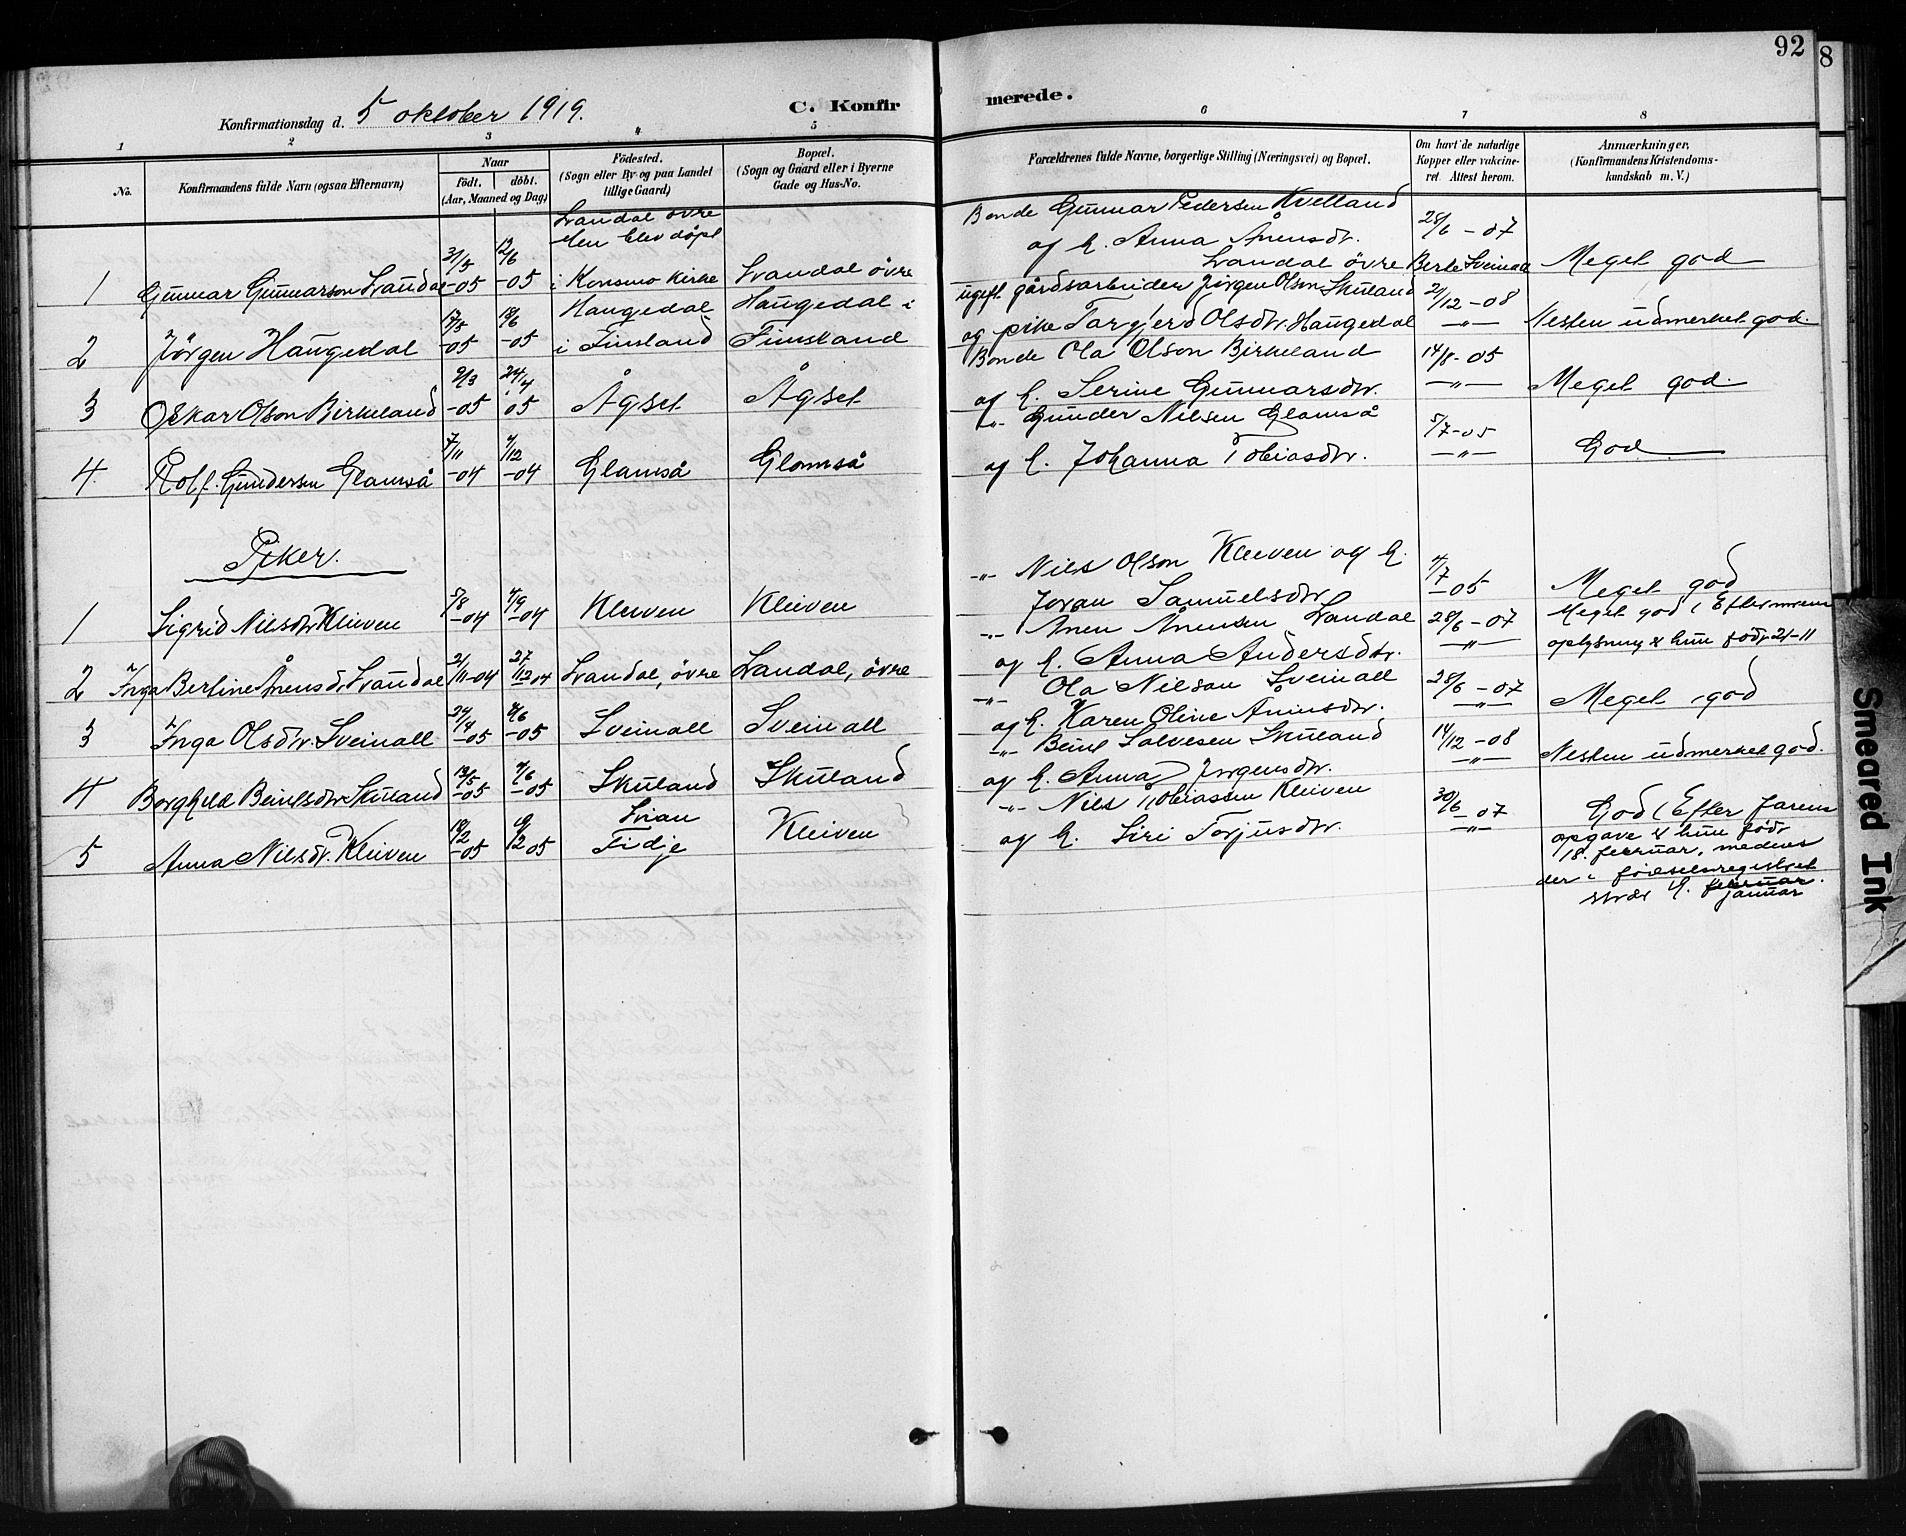 92
8
C. Konfirmerede.
Konfirmationsdag d. 5 oktober 1919.
1 2 3 4 5 6 7 8
No.
Konfirmandens fulde Navn (ogsaa Efternavn)
Naar
født. døbt.
(Aar, Maaned og Dag)
Fødested.
(Sogn eller By og paa Landet
tillige Gaard)
Bopæl.
(Sogn og Gaard eller i Byerne
Gade og Hus-No.
Forældrenes fulde Navne, borgerlige Stilling (Næringsvei) og Bopæl.
Om havt de naturlige
Kopper eller vakcine-
ret. Attest herom.
Anmærkninger,
(Konfirmandens Kristendoms-
kundskab m. V.)
1 Gunnar Gunnarson Svandal 31/5 -05 12/6 -05
Svandal øvre
Men blev døpt
i Konsmo kirke
Svandal øvre
Bonde Gunnar Pedersen Kvelland
og h. Anna Ånensdtr.
Svandal øvre
28/6 -07
Berte Sveinall
Meget god
2 Jørgen Haugedal 17/5 -05 18/6 -05
Haugedal
i Finsland
Haugedal i
Finsland
ugift gårdsarbeider Jørgen Olson Skuland
og pike Targjerd Olsdtr. Haugedal
21/12 -08
-"-
Nesten udmerket god.
3 Oskar Olson Birkeland 9/3 -05 24/4 05 Ågset Ågset
Bonde Ola Olson Birkeland
og h. Serine Gunnarsdtr.
14/8 -05
-"-
Meget god.
4. Rolf Gundersen Glamså 7/11 -04 4/12 -04 Glamså Glomså
-"- Gunder Nilsen Glamså
og h. Johanna Tobiasdtr.
5/7 -05
-"-
God
Piker.
1 Sigrid Nilsdtr Kleiven 5/8 -04 4/9 -04 Kleiven Kleiven
-"- Nils Olson Kleiven og h.
Joran Samuelsdtr
4/7 -05
Meget god
2 Inga Berline Ånensd. Svandal 21/11 -04 27/12 04 Svandal, øvre Svandal, øvre
-"- Ånen Ånensen Svandal
og h. Anna Andersdtr.
28/6 -07
-"-
Meget god (Efter morens
oplysning er hun født 21-11
3 Inga Olsdtr. Sveinall 24/4 -05 4/6 -05 Sveinall Sveinall
-"- Ola Nilson Sveinall
og h. Karen Oline Åninsdtr.
28/6 -07
-"-
Meget god
4 Borghild Beintsdtr. Skuland 13/5 -05 4/6 -05 Skuland Skuland
-"- Beint Salvesen Skuland
og h. Anna Jørgensdtr.
14/12 -08
-"-
Nesten udmerket god.
5 Anna Nilsdtr. Kleiven 18/2 -05 19/2 05
Fidje
Kleiven
-"- Nils Tobiassen Kleiven
og h. Siri Torjusdtr.
30/6 -07
-"-
God (Efter farens
opgave er hun født
18. februar, medens
der i fødselsregistret
står 4. februar.
januar
Smeared Ink